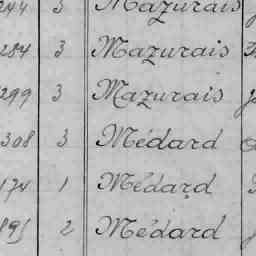 244 3 Mazurais
284 3 Mazurais
299 3 Mazurais
308 3 Médard
174 1 Médard
895 2 Médard